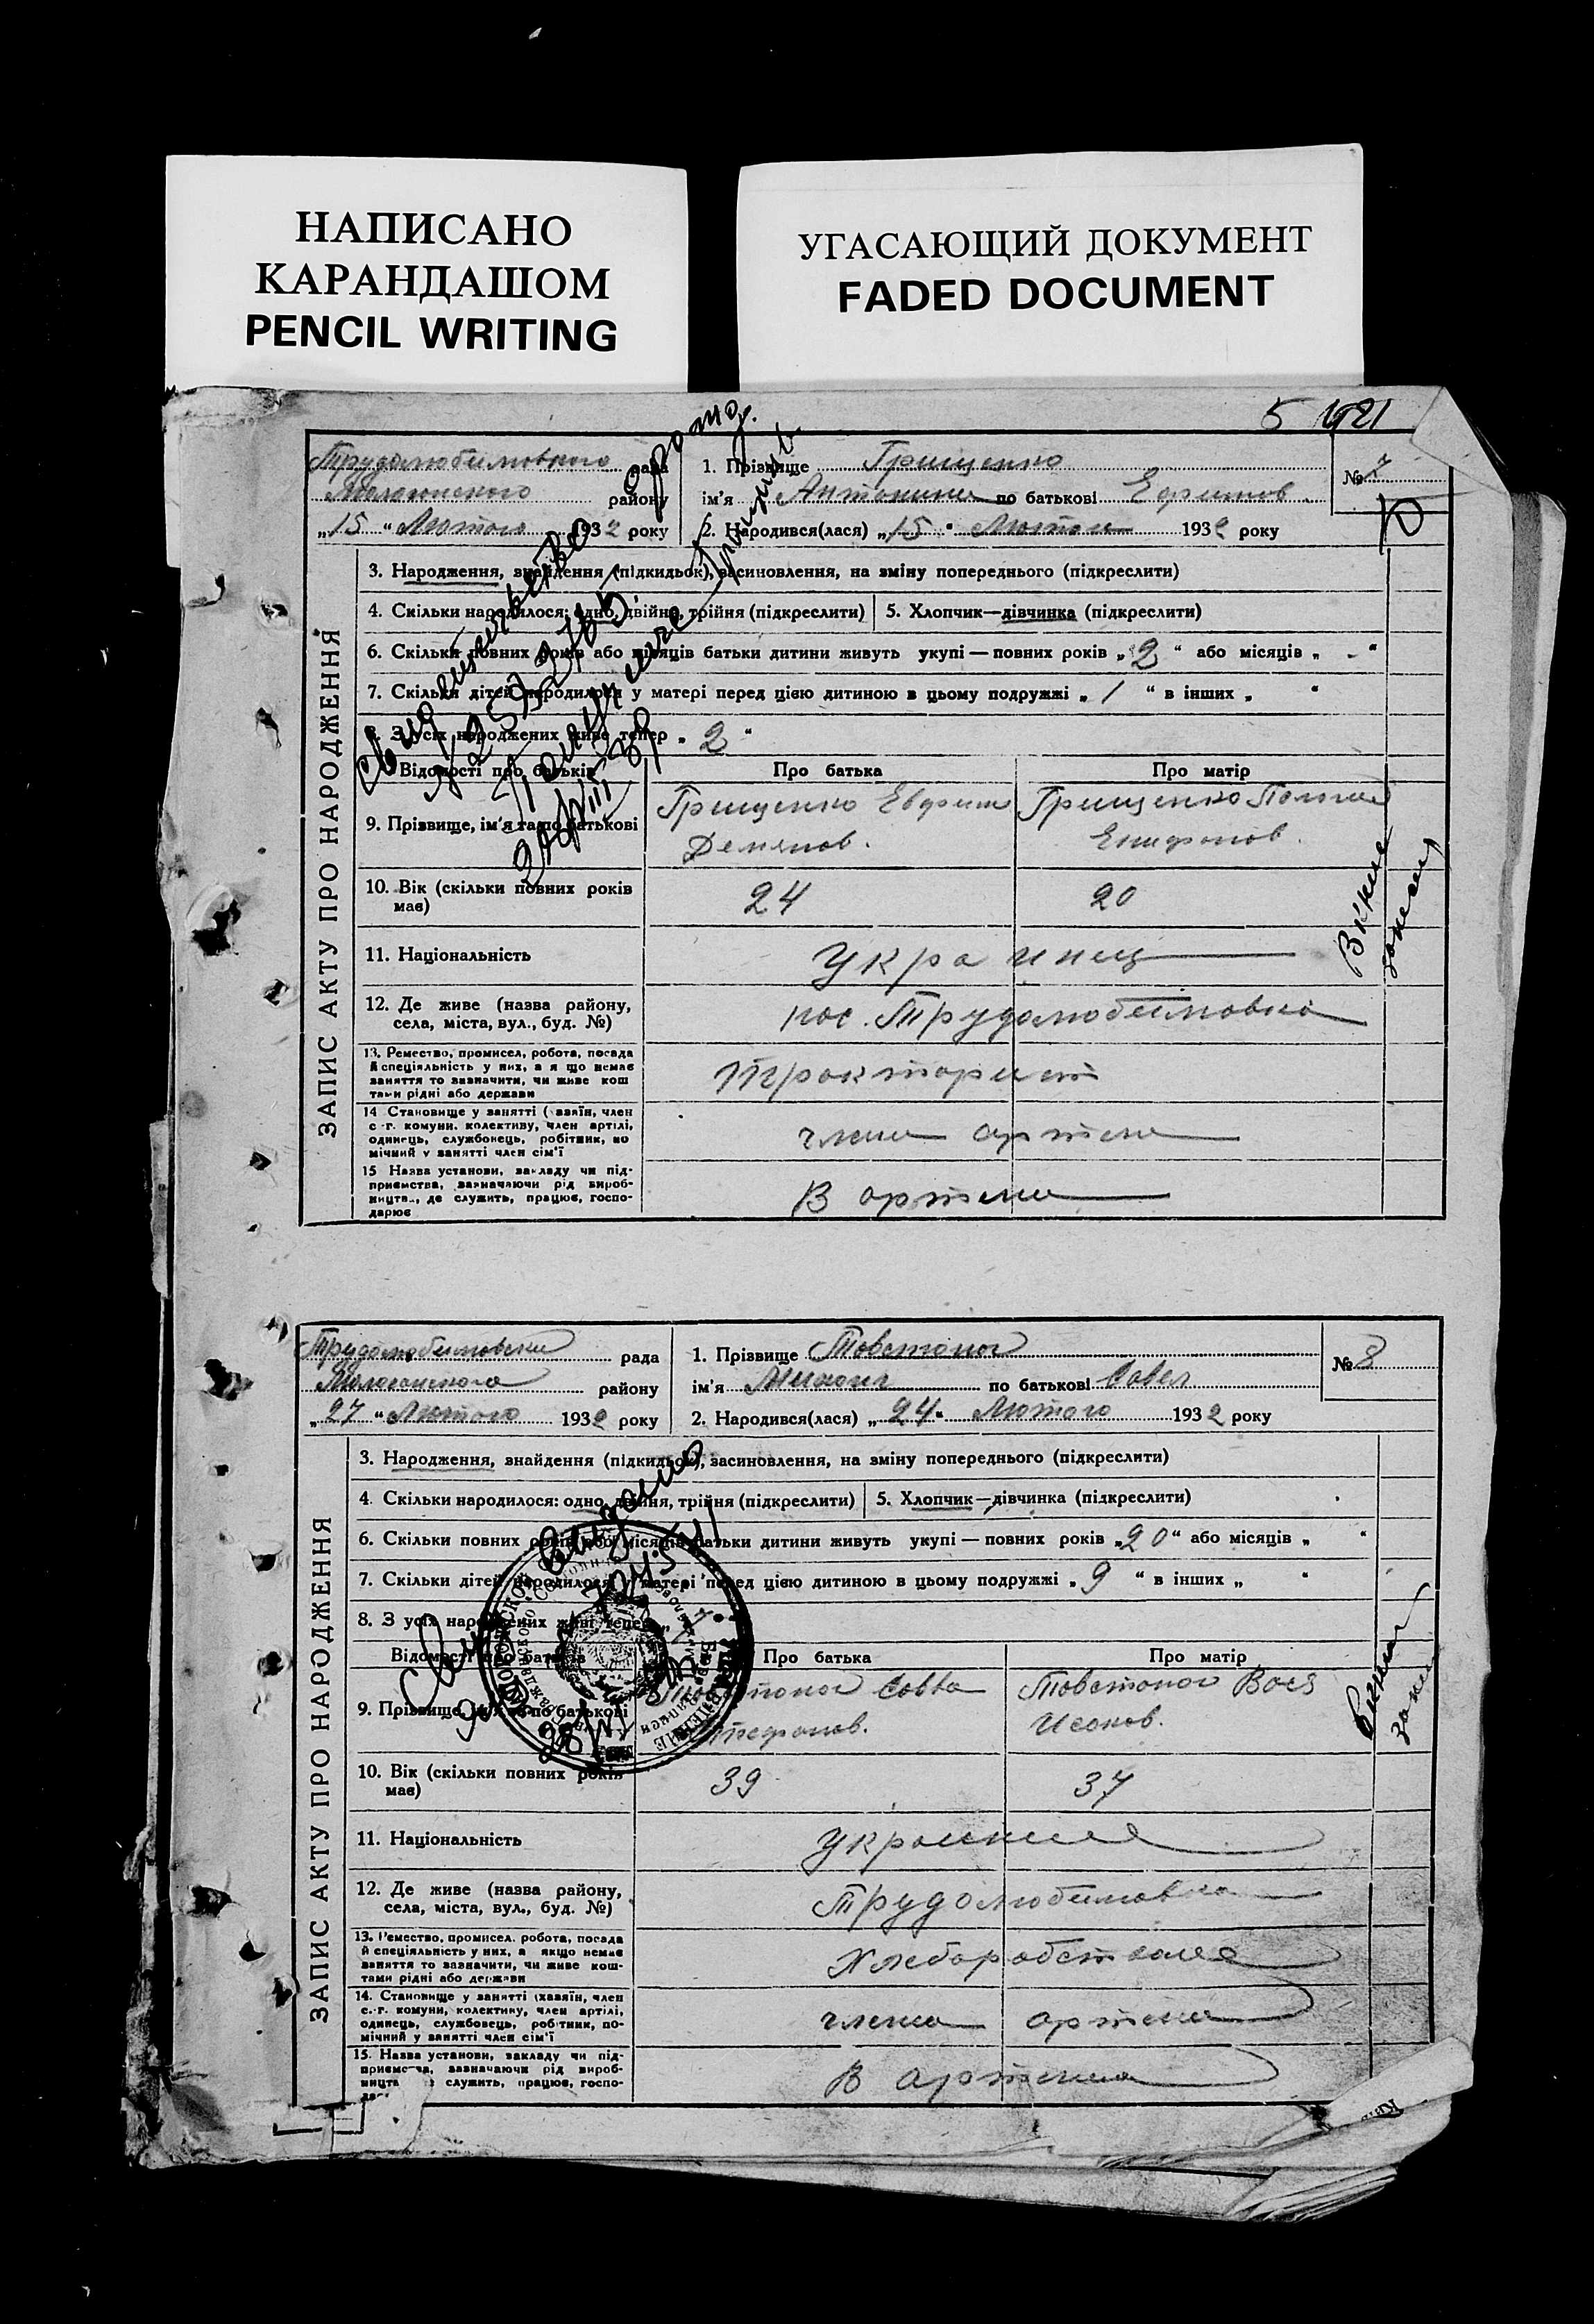 НАПИСАНО
КАРАНДАШОМ
PENCIL WRITING
УГАСАЮЩИЙ ДОКУМЕНТ
FADED DOCUMENT
5
рада
району
„15 " Лютого 1932 року
1. Прізвище Грищенко
ім'я Антонина по батькові Ефимов.
2. Народився(лася) „15 " Лютого 1932 року
№ 7
ЗАПИС АКТУ ПРО НАРОДЖЕННЯ
3. Народження, знайдення (підкидьок), засиновлення, на зміну попереднього (підкреслити)
4. Скільки народилося: одно, двійня, трійня (підкреслити)
5. Хлопчик—дівчинка (підкреслити)
6. Скільки повних років або місяців батьки дитини живуть укупі — повних років „2 " або місяців „ - "
7. Скільки дітей народилося у матері перед цією дитиною в цьому подружжі „ 1 " в інших „ "
8. З усіх народжених живе тепер „ 2 "
Відомості про батьків
Про батька
Про матір
9. Прізвище, ім'я та по батькові
Грищенко
Грищенко
10. Вік (скільки повних років
має)
24
20
11. Національність
Украинец
12. Де живе (назва району,
села, міста, вул., буд. №)
пос. Трудолюбимовка
13. Ремество, промисел, робота, посада
й спеціяльність у них, а я що немає
заняття то зазначити, чи живе кош
тами рідні або держави
Тракторист
14 Становище у занятті (хазяїн, член
с.-г. комуни, колективу, член артілі,
одинець, службовець, робітник, по
мічний у занятті член сім'ї
члени артели
15 Назва установи, закладу чи під-
приємства, зазначаючи рід вироб-
ництв., де служить, працює, госпо-
дарює
В артели
рада
району
„27 " Лютого 1932 року
1. Прізвище Товстоног
ім'я по батькові Савел
2. Народився(лася) „ 24 " Лютого 1932 року
№ 8
ЗАПИС АКТУ ПРО НАРОДЖЕННЯ
3. Народження, знайдення (підкидьок), засиновлення, на зміну попереднього (підкреслити)
4. Скільки народилося: одно, двійня, трійня (підкреслити)
5. Хлопчик—дівчинка (підкреслити)
6. Скільки повних років або місяців батьки дитини живуть укупі — повних років „20" або місяців „ "
7. Скільки дітей народилося у матері перед цією дитиною в цьому подружжі „ 9 " в інших „ "
8. З усіх народжених живе тепер
Відомості про батьків
Про батька
Про матір
9. Прізвище, ім'я та по батькові
Товстоног Савва
Товстоног
10. Вік (скільки повних років
має)
39
37
11. Національність
12. Де живе (назва району,
села, міста, вул., буд. №)
Трудолюбимовка
13. Ремество, промисел, робота, посада
й спеціяльність у них, а якщо немає
заняття то зазначити, чи живе кош-
тами рідні або держави
14. Становище у занятті (хазяїн, член
с.-г. комуни, колективу, член артілі,
одинець, службовець, робітник, по-
мічний у занятті член сім'ї
члени артели
15. Назва установи, закладу чи під-
приємства, зазначаючи рід вироб-
ництва служить, працює, госпо-
В артели